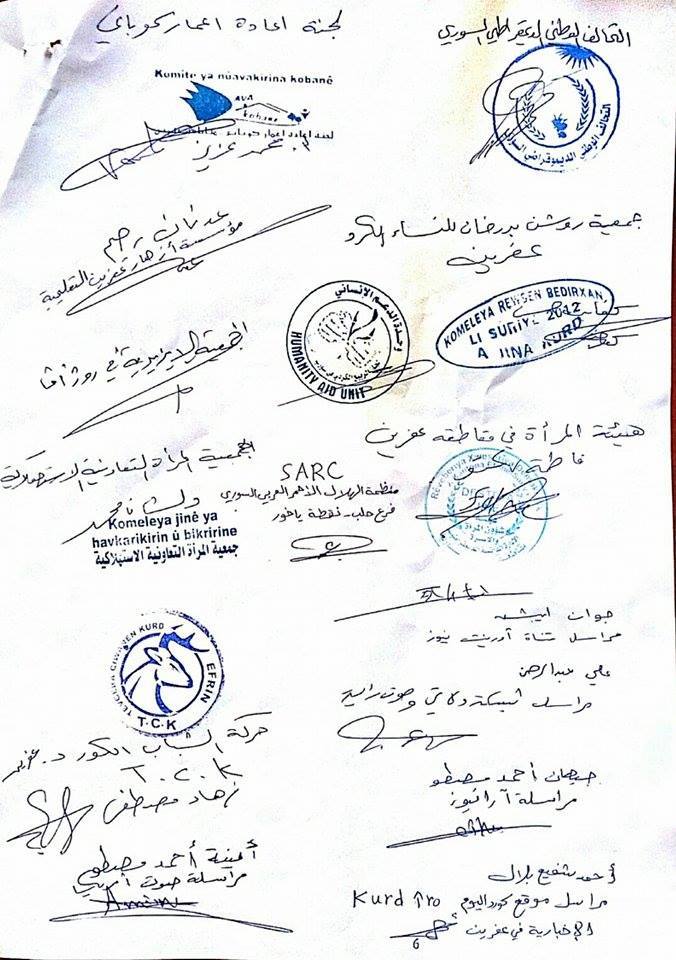 التحالف الوطني الديمقراطي السوري
التحالف الوطني الديموقراطي السوري
لجنة اعادة اعمار كوباني
Komite ya nûavakirina kobanê
AVA
kobanê
لجنة إعادة إعمار كوباني
محمد عزيز
جمعية روشن بدرخان للنساء الكرد
عفرين
KOMELEYA REWŞEN BEDIRXAN
LI SURIYE 2012
A JINA KURD
عدنان رحيم
مؤسسة أزهار عفرين التعليمية
وحدة الدعم الإنساني
HUMANITY AID UNIT
الجمعية الايزيدية في روژآفا
هيئة المرأة في مقاطعة عفرين
فاطمة
جمعية المرأة التعاونية الاستهلاكية
Komeleya jinê ya
havkarikirin û bikririne
جمعية المرأة التعاونية الاستهلاكية
SARC
منظمة الهلال الأحمر العربي السوري
فرع حلب - نقطة ياخور
جوان
مراسل قناة أورينت نيوز
علي عبدالرحمن
مراسل شبكة ولاتي وصوت راية
TEVGERA CIWANÊN KURD
EFRIN
T.C.K
حركة الشباب الكورد
T.C.K
نهاد مصطفى
جيهان أحمد مصطفو
مراسلة آرانيوز
أمينة أحمد مصطفى
مراسلة صوت أمريكا
Amine
أحمد شفيع بلال
مراسل موقع كورد اليوم Kurd Îro
الإخبارية في عفرين
6